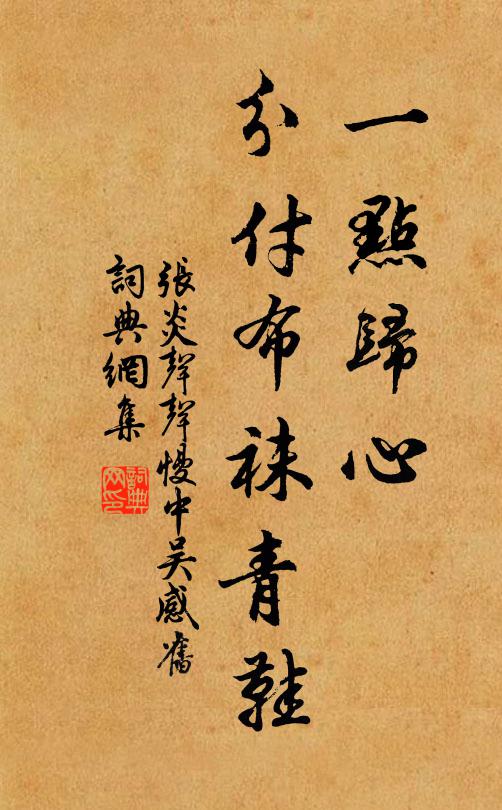 一點歸心
分付布袜青鞋
張炎聲聲慢中吳感舊
詞典網集
詞典網印